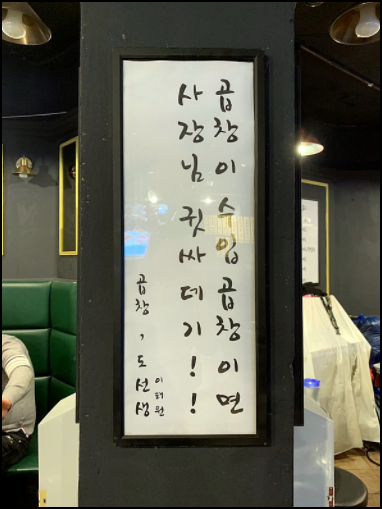 곱창이 수입 곱창이면
사장님 귓싸데기!!
곱창, 도선생
이태원